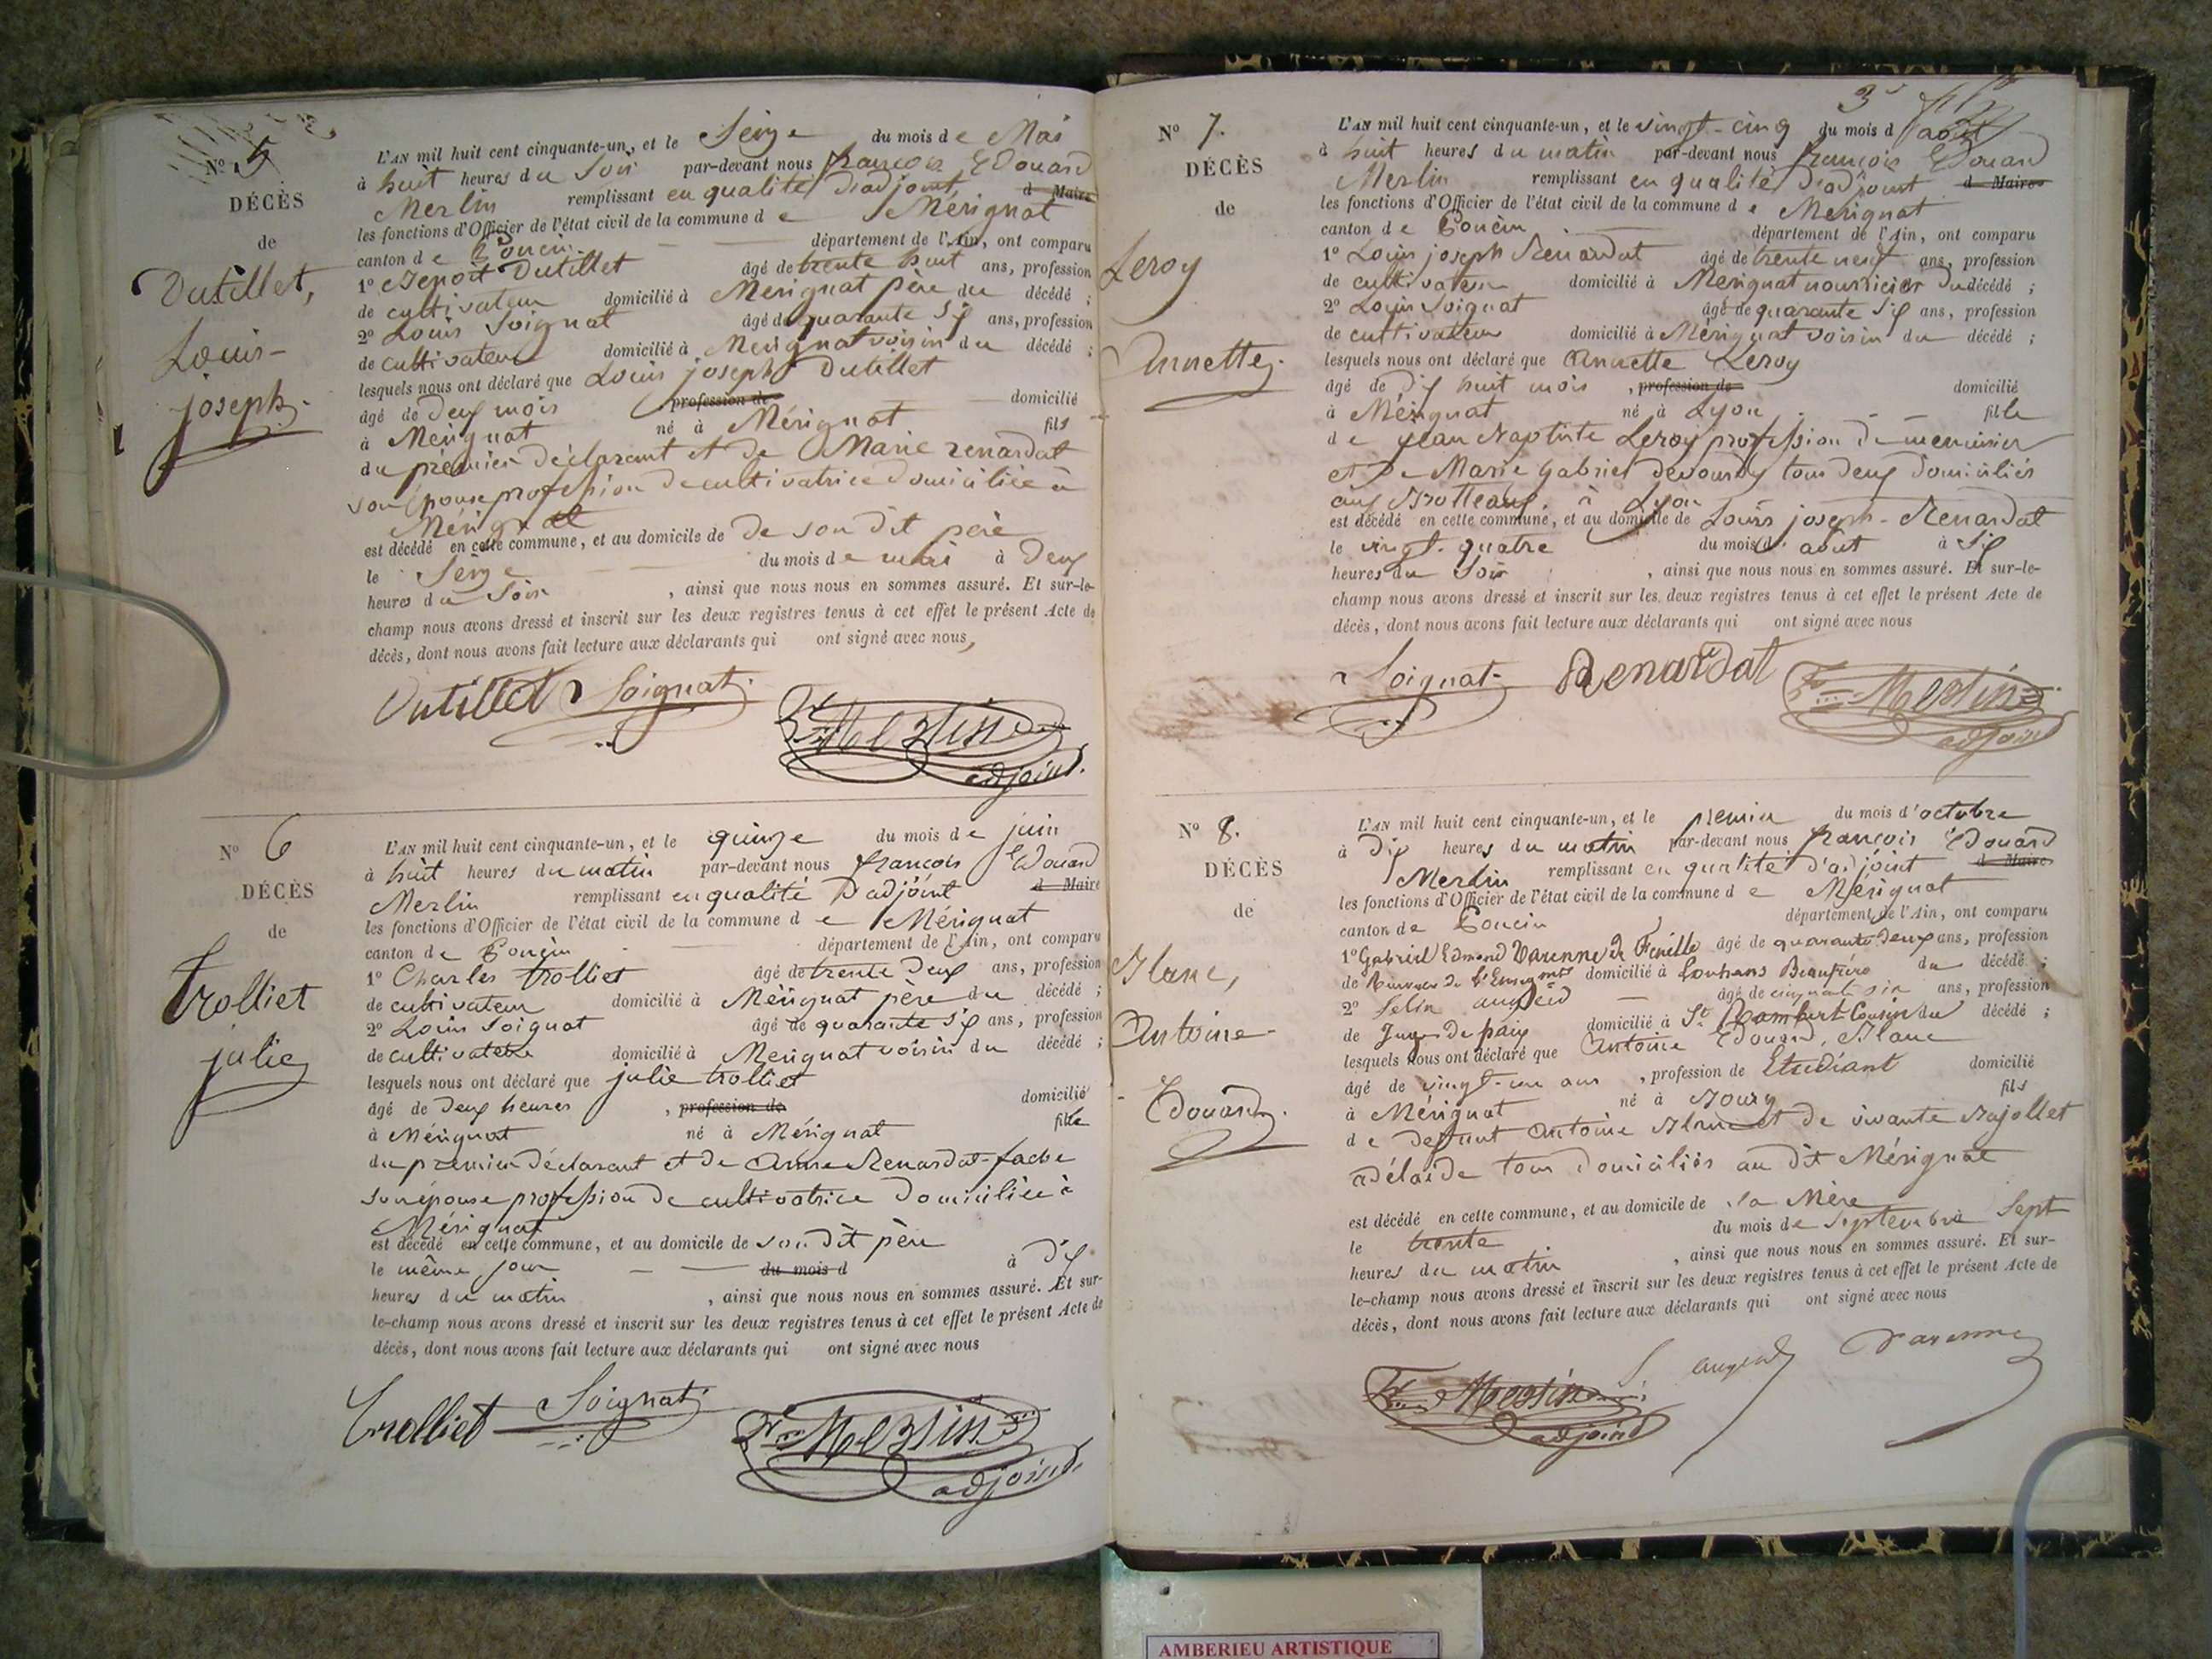 N° 5
DÉCÈS
de
Dutillet,
Louis-
joseph.
L'AN mil huit cent cinquante-un, et le Seize du mois de Mai
à huit heures du Soir par-devant nous françois Edouard
Merlin remplissant en qualité d'adjoint, d Maire
les fonctions d'Officier de l'état civil de la commune de Mérignat
canton de Poncin département de l'Ain, ont comparu
1° Benoit Dutillet âgé de trente huit ans, profession
de cultivateur domicilié à Mérignat père du décédé ;
2° Louis Soignat âgé de quarante Six ans, profession
de cultivateur domicilié à Mérignat voisin du décédé ;
lesquels nous ont déclaré que Louis joseph Dutillet
âgé de Deux mois , profession de domicilié
à Mérignat né à Mérignat fils
du premier déclarant et de Marie renardat
son épouse profession de cultivatrice domiciliée à
Mérignat
est décédé en cette commune, et au domicile de de son dit père
le Seize du mois de mai à Deux
heures du Soir , ainsi que nous nous en sommes assuré. Et sur-le-
champ nous avons dressé et inscrit sur les deux registres tenus à cet effet le présent Acte de
décès, dont nous avons fait lecture aux déclarants qui ont signé avec nous,
Dutillet Soignat
Merlin
adjoint.
N° 6
DÉCÈS
de
Trolliet
julie
L'AN mil huit cent cinquante-un, et le quinze du mois de juin
à huit heures du matin par-devant nous françois Edouard
Merlin remplissant en qualité d'adjoint d Maire
les fonctions d'Officier de l'état civil de la commune de Mérignat
canton de Poncin département de l'Ain, ont comparu
1° Charles trolliet âgé de trente Deux ans, profession
de cultivateur domicilié à Mérignat père du décédé ;
2° Louis Soignat âgé de quarante Six ans, profession
de cultivateur domicilié à Mérignat voisin du décédé ;
lesquels nous ont déclaré que julie trolliet
âgé de Deux heures , profession de domicilié
à Mérignat né à Mérignat fille
du premier déclarant et de Anne Renardat-fache
son épouse profession de cultivatrice domiciliée à
Mérignat
est décédé en cette commune, et au domicile de son dit père
le même jour du mois d à dix
heures du matin , ainsi que nous nous en sommes assuré. Et sur-
le-champ nous avons dressé et inscrit sur les deux registres tenus à cet effet le présent Acte de
décès, dont nous avons fait lecture aux déclarants qui ont signé avec nous
Trolliet Soignat
Merlin
adjoint
3e
N° 7.
DÉCÈS
de
Leroy
Annette.
L'AN mil huit cent cinquante-un, et le vingt-cinq du mois d août
à huit heures du matin par-devant nous françois Edouard
Merlin remplissant en qualité d'adjoint d Maire
les fonctions d'Officier de l'état civil de la commune de Mérignat
canton de Poncin département de l'Ain, ont comparu
1° Louis joseph Renardat âgé de trente neuf ans, profession
de cultivateur domicilié à Mérignat nourricier du décédé ;
2° Louis Soignat âgé de quarante Six ans, profession
de cultivateur domicilié à Mérignat voisin du décédé ;
lesquels nous ont déclaré que Annette Leroy
âgé de dix huit mois , profession de domicilié
à Mérignat né à Lyon fille
de jean Baptiste Leroy profession de menuisier
et de Marie Gabriel tous deux domiciliés
aux Brotteaux, à Lyon
est décédé en cette commune, et au domicile de Louis joseph-Renardat
le vingt-quatre du mois d' août à Six
heures du Soir , ainsi que nous nous en sommes assuré. Et sur-le-
champ nous avons dressé et inscrit sur les deux registres tenus à cet effet le présent Acte de
décès, dont nous avons fait lecture aux déclarants qui ont signé avec nous
Soignat Renardat Merlin
adjoint
N° 8.
DÉCÈS
de
Blanc,
Antoine-
Edouard.
L'AN mil huit cent cinquante-un, et le premier du mois d'octobre
à Dix heures du matin par-devant nous françois Edouard
Merlin remplissant en qualité d'adjoint d Maire
les fonctions d'Officier de l'état civil de la commune de Mérignat
canton de Poncin département de l'Ain, ont comparu
1° Gabriel Edmond Varenne de Fenille âgé de quarante deux ans, profession
de domicilié à Louhans Beaufrère du décédé ;
2° âgé de cinquante six ans, profession
de Juge de paix domicilié à St Rambert Cousin du décédé ;
lesquels nous ont déclaré que Antoine Edouard Blanc
âgé de vingt-un ans , profession de Etudiant domicilié
à Mérignat né à Bourg fils
de defunt Antoine Blanc et de vivante Bajollet
adélaïde tous domiciliés au dit Mérignat
est décédé en cette commune, et au domicile de sa Mère
le trente du mois de septembre à Sept
heures du matin , ainsi que nous nous en sommes assuré. Et sur-
le-champ nous avons dressé et inscrit sur les deux registres tenus à cet effet le présent Acte de
décès, dont nous avons fait lecture aux déclarants qui ont signé avec nous
Merlin Varenne
adjoint
AMBERIEU ARTISTIQUE